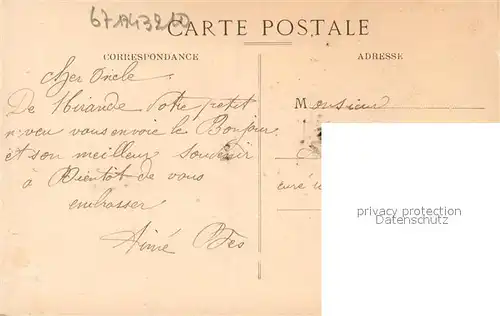 67A43210
CARTE POSTALE
CORRESPONDANCE
ADRESSE
cher Oncle
De Mirande Votre petit
neveu vous envoie le Bonjour
et son meilleur Souvenir
à Bientôt de vous
embrasser
Aimé Bès
Monsieur
curé
privacy protection
Datenschutz